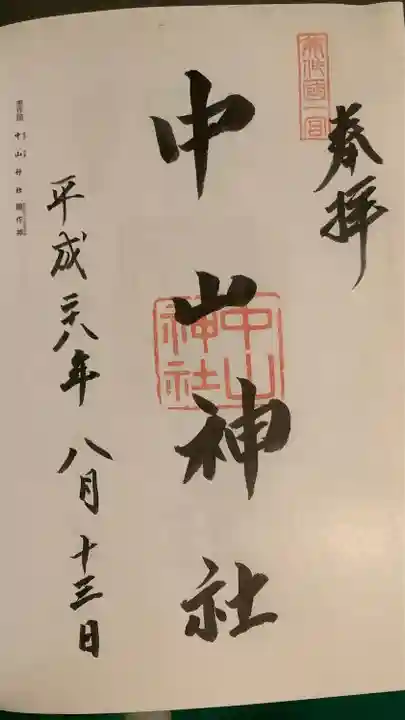 奉拝
美作國一宮
中山神社
中山
神社
平成二十八年 八月 十三日
中山神社